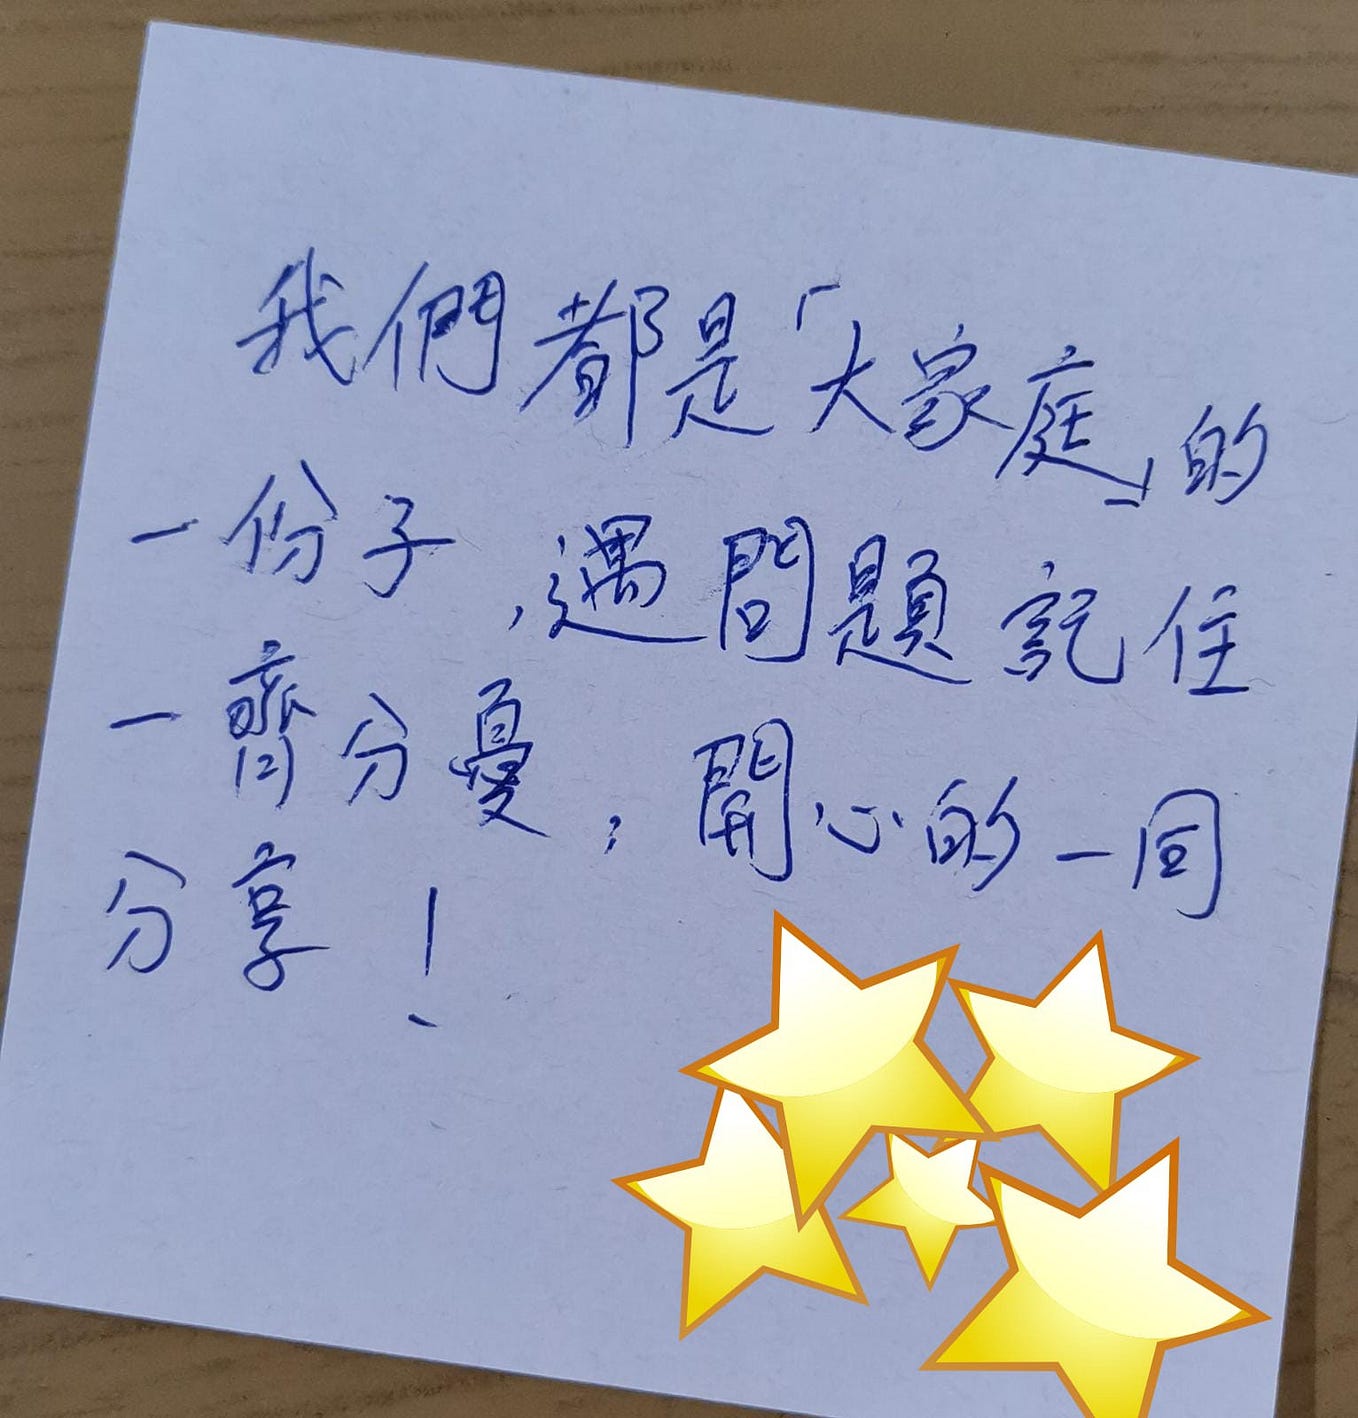 我們都是「大家庭」的
一份子,遇問題記住
一齊分憂,開心的一同
分享!